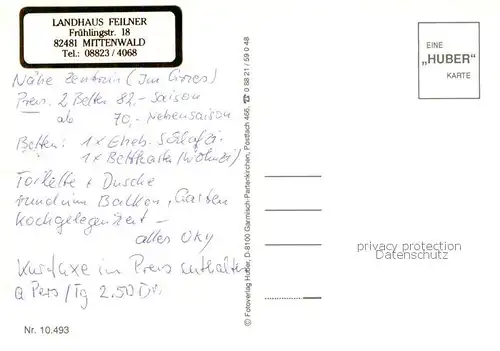 LANDHAUS FEILNER
Frühlingstr. 18
82481 MITTENWALD
Tel.: 08823 / 4068
Nähe Zentrum (Im Gries)
Preis. 2 Betten 82,- Saison
ab 70,- Nebensaison
Betten: 1 x Eheb. Schlafzi.
1 x Bettkasten (Wohnzi)
Toilette + Dusche
rundum Balkon, Garten
Kochgelegenheit -
alles oky
Kurtaxe im Preis enthalten
a Pers / Tg 2.50 DM
Nr. 10.493
© Fotoverlag Huber, D-8100 Garmisch-Partenkirchen, Postfach 466, ☎ 0 88 21 / 59 0 48
EINE
„HUBER"
KARTE
privacy protection
Datenschutz